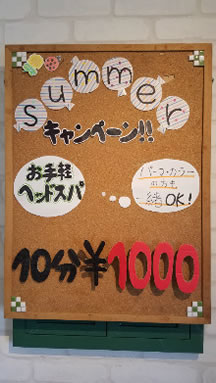 summer
キャンペーン!!
お手軽
ヘッドスパ
パーマ・カラー
の方も
一緒OK!
10分¥1000